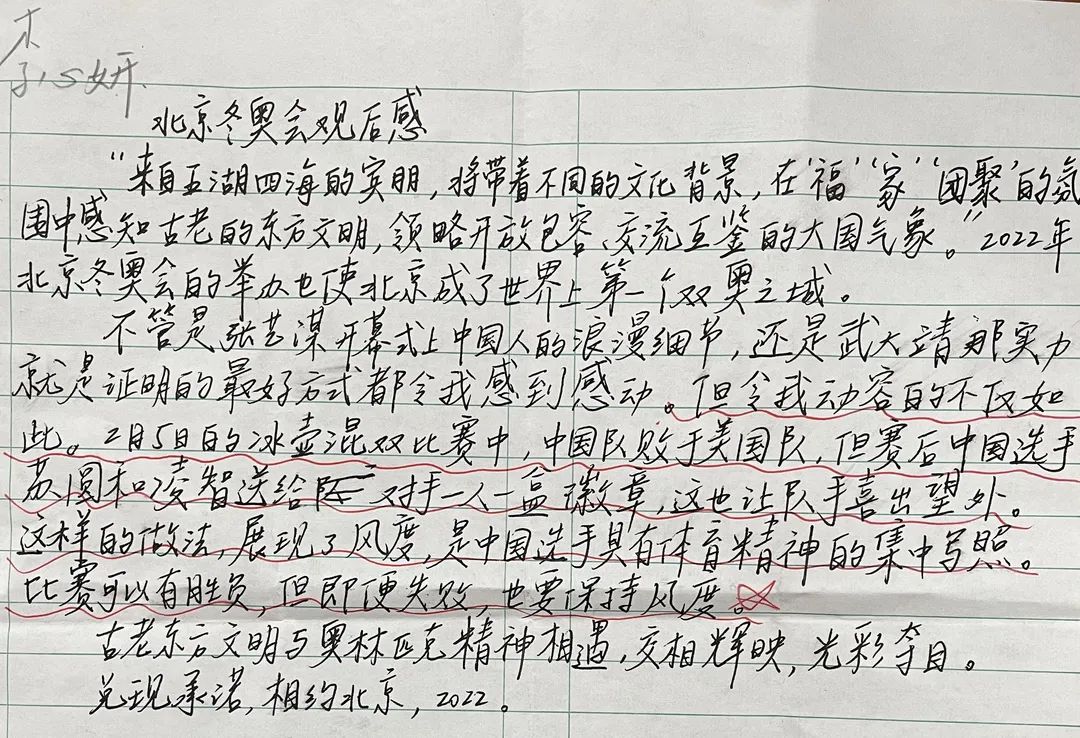 李心妍
北京冬奥会观后感
"来自五湖四海的宾朋,将带着不同的文化背景,在'福''家''团聚'的氛
围中感知古老的东方文明,领略开放包容、交流互鉴的大国气象。"2022年
北京冬奥会的举办也使北京成了世界上第一个双奥之城。
不管是张艺谋开幕式上中国人的浪漫细节,还是武大靖那实力
就是证明的最好方式都令我感到感动。但令我动容的不仅如
此。2月5日的冰壶混双比赛中,中国队败于美国队,但赛后中国选手
苏圆和凌智送给对手一人一盒徽章,这也让队手喜出望外。
这样的做法,展现了风度,是中国选手具有体育精神的集中写照。
比赛可以有胜负,但即便失败,也要保持风度。
古老东方文明与奥林匹克精神相遇,交相辉映,光彩夺目。
兑现承诺,相约北京,2022。